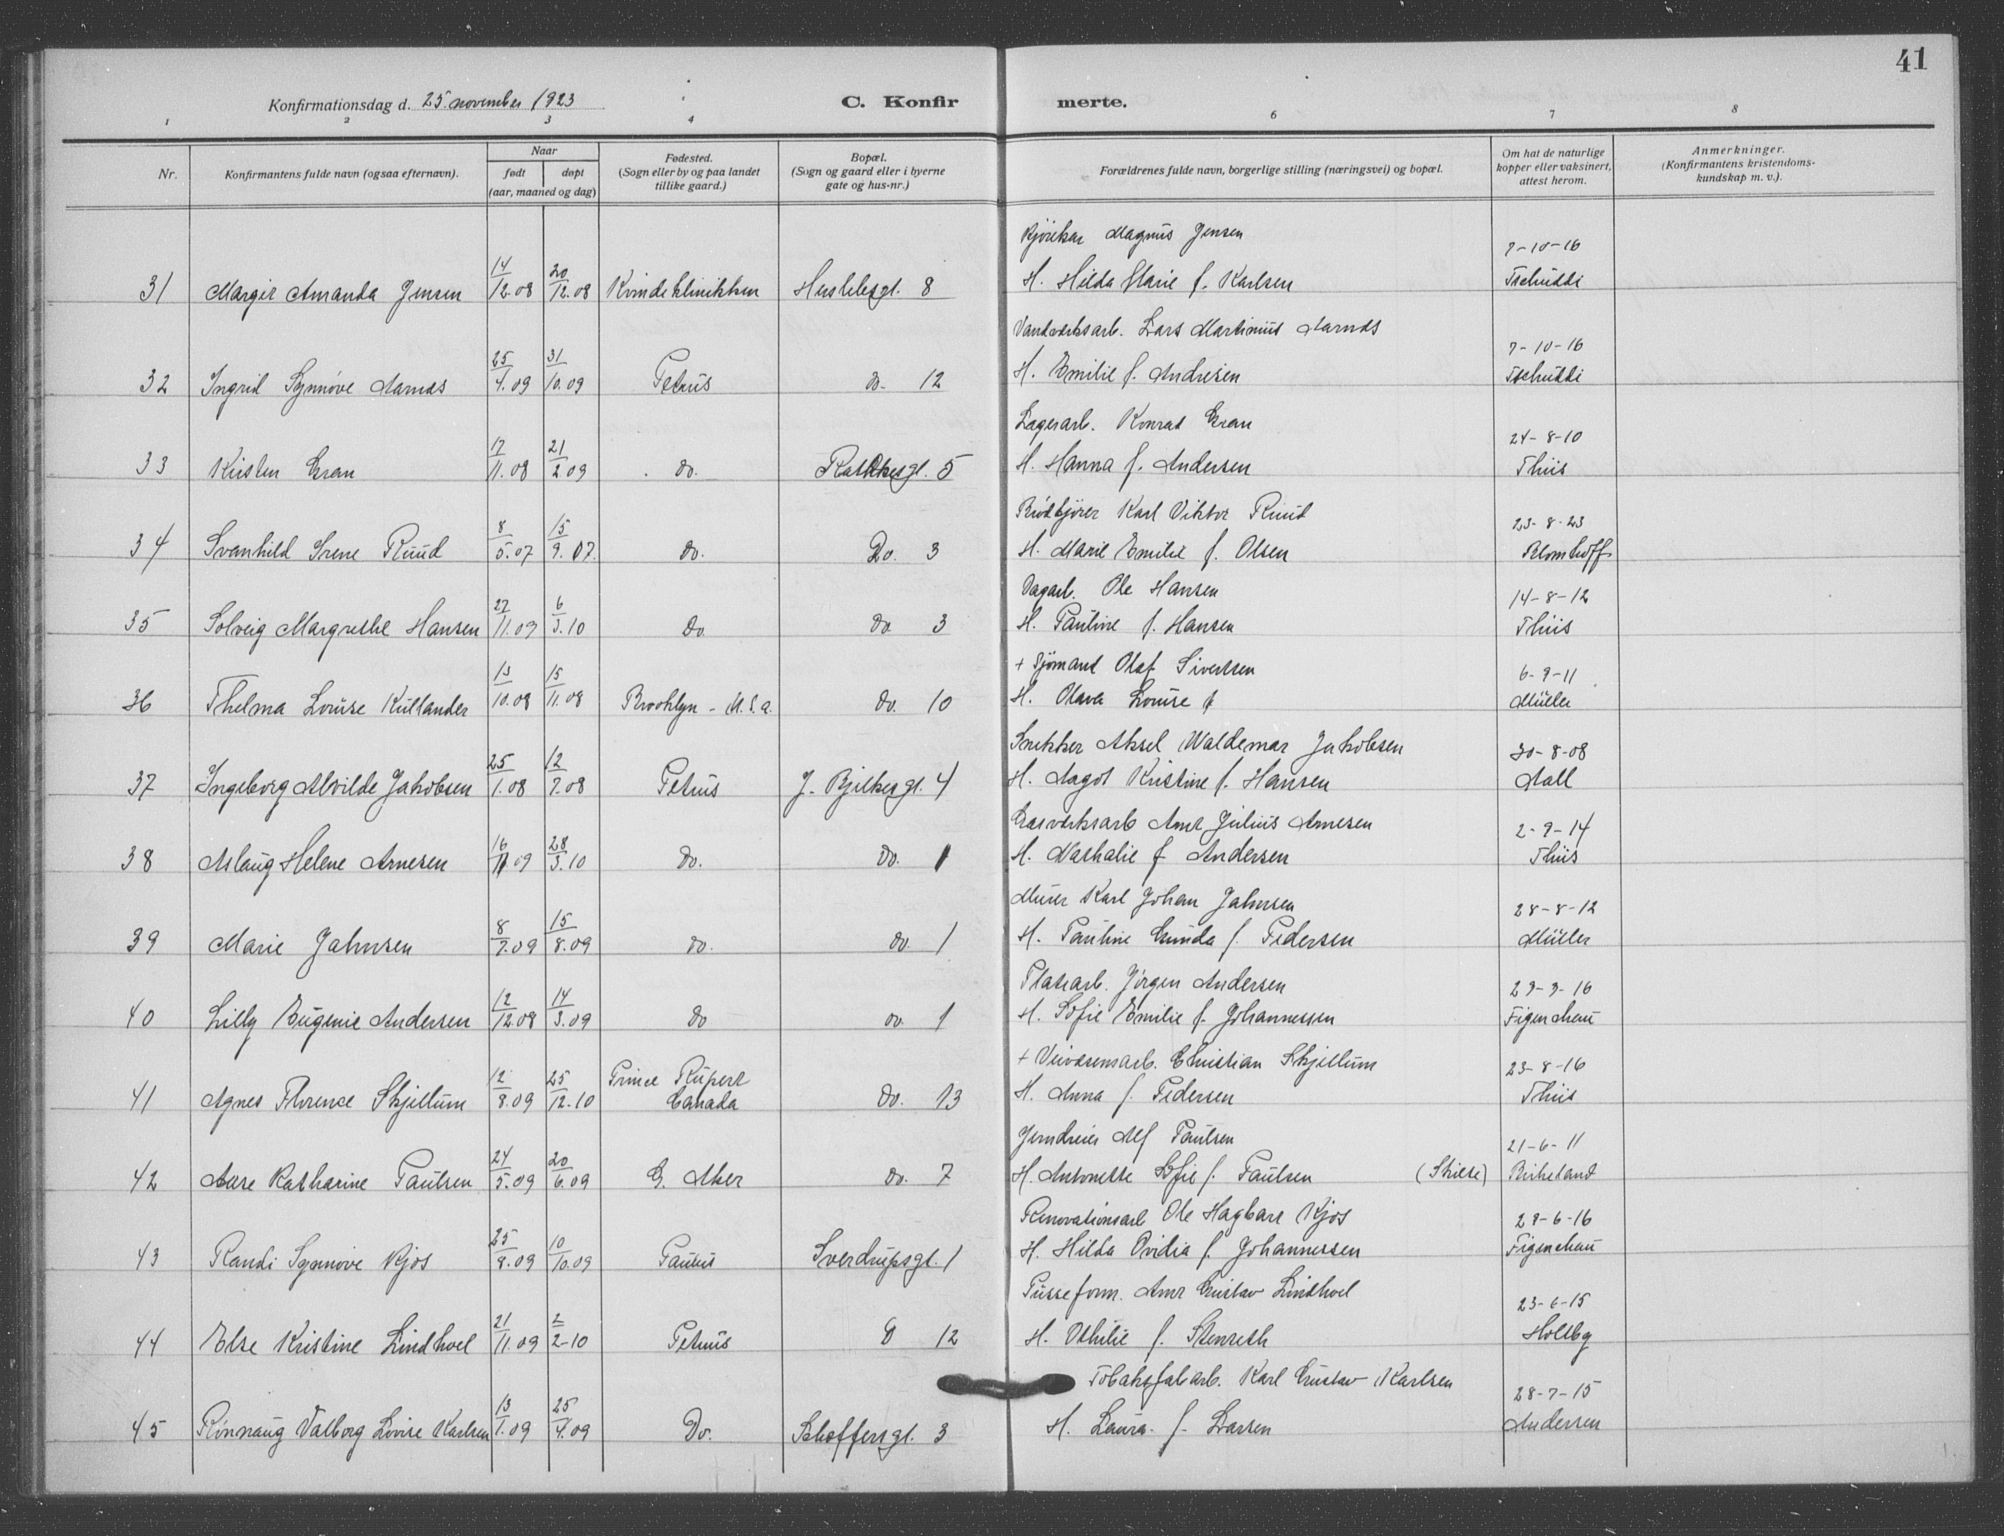 41
Konfirmationsdag d. 25. november 1923
C. Konfirmerte.
1 2 3 4 6 7 8
Nr.
Konfirmantens fulde navn (ogsaa efternavn).
Naar
født døpt
(aar, maaned og dag)
Fødested.
(Sogn eller by og paa landet
tillike gaard.)
Bopæl.
(Sogn og gaard eller i byerne
gate og hus-nr.)
Forældrenes fulde navn, borgerlige stilling (næringsvei) og bopæl.
Om hat de naturlige
kopper eller vaksinert,
attest herom.
Anmerkninger.
(Konfirmantens kristendoms-
kundskap m. v.).
Kjørekar Magnus Jensen 7-10-16
31 Margit Amanda Jensen 14/12.08 20/12.08 Kvindeklinikken 8 H. Hilda Marie f. Karlsen Tschuddi
Vandverksarb. Lars Martinius Aarnæs 7-10-16
32 Ingrid Synnøve Aarnæs 25/4.09 31/10.09 Petrus do. 12 H. Emilie f. Andresen Tschuddi
Lagerarb. Konrad Gran 24-8-10
33 Kirsten Gran 17/11.08 21/2.09 do. Rathkesgt. 5 H. Hanna f. Andersen Thiis
Brødkjører Karl Viktor Ruud 23-8-23
34 Svanhild Irene Ruud 8/5.07 15/9.07. do. Do. 3 H. Marie Emilie f. Olsen Blomhoff
Dagarb. Ole Hansen 14-8-12
35 Solveig Margrethe Hansen 27/11.09 6/3.10 do. do. 3 H. Pauline f. Hansen Thiis
+ Sjømand Olaf Sivertsen 6-9-11
36 Thelma Louise Kullander 13/10.08 15/11.08 Brooklyn - U.S.a. do. 10 H. Olava Louise f Müller
Snekker Aksel Waldemar Jakobsen 30-8-08
37 Ingeborg Alvilde Jakobsen 25/1.08 12/7.08 Petrus J. Bjelkesgt. 4 H. Aagot Kristine f. Hansen Aall
Gasverksarb Anr Julius Arnesen 2-9-14
38 Aslaug Helene Arnesen 16/11 09 28/3.10 do. do. 1 H. Nathalie f Andersen Thiis
Murer Karl Johan Jahnsen 28-8-12
39 Marie Jahnsen 8/7.09 15/8.09 do. do. 1 H. Pauline Gunda f. Pedersen Müller
Platearb. Jørgen Andersen 29-9-16
40 Lilly Eugenie Andersen 12/12.08 14/3.09 do do. 1 H. Sofie Emilie f. Johannessen Figenschau
+ Veivæsensarb. Christian Skjellum 23-8-16
41 Agnes Florence Skjellum 12/8.09 25/12.10 Prince Rupert Canada do. 13 H. Anna f. Pedersen Thiis
Jerndreier Alf Paulsen 21-6-11
42 Aase Katharine Paulsen 24/5.09 20/6.09 G. Aker do. 7 H. Antonette Sofie f. Paulsen (Skilse) Birkeland
Renovationsarb Ole Hagbart Kjos 29-6-16
43 Randi Synnøve Kjos 25/8.09 10/10.09 Paulus Sverdrupsgt. 1 H. Hilda Ovidia f. Johannessen Figenschau
Pusseform. Anr Gustav Lindhoel 23-6-15
44 Else Kristine Lindhoel 21/11.09 2/2-10 Petrus 12 H. Othilie f. Stenreth Holtby
Tobaksfabarb. Karl Gustav Karlsen 28-7-15
45 Rønnaug Valborg Lovise Karlsen 13/1.09 25/4.09 Do. Schoffersgt. 3 H. Laura f. Larsen Andersen